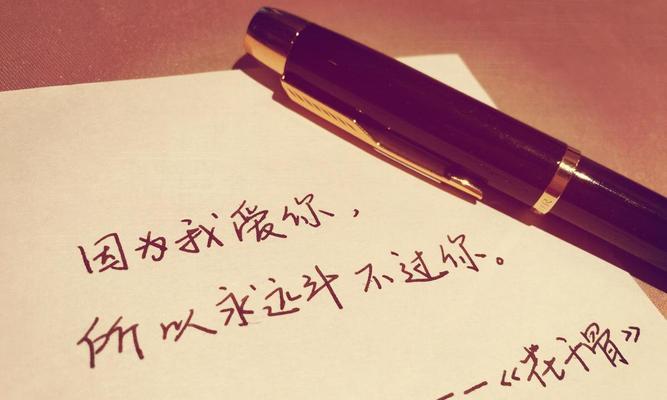 因为我爱你，
所以永远斗不过你。
——《花千骨》